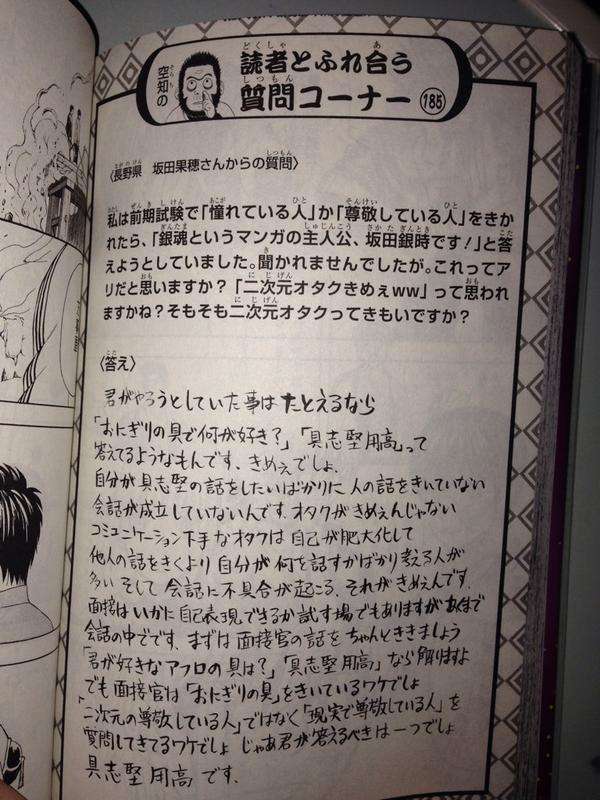 空知の
読者とふれ合う
質問コーナー 185
〈長野県 坂田果穂さんからの質問〉
私は前期試験で「憧れている人」か「尊敬している人」をきか
れたら、「銀魂というマンガの主人公、坂田銀時です!」と答
えようとしていました。聞かれませんでしたが。これってア
リだと思いますか?「二次元オタクきめぇww」って思われ
ますかね?そもそも二次元オタクってきもいですか?
〈答え〉
君がやろうとしていた事は たとえるなら
「おにぎりの具で何が好き?」「具志堅用高」って
答えてるようなもんです、きめぇでしょ、
自分が具志堅の話をしたいばかりに 人の話をきいていない
会話が成立していないんです。オタクがきめぇんじゃない
コミュニケーション下手なオタクは 自己が肥大化して
他人の話をきくより 自分が何を話すかばかり考える人が
多い そして 会話に不具合が起こる、それがきめぇんです。
面接は いかに自己表現できるか試す場でもありますが あくまで
会話の中でです、まずは 面接官の話を ちゃんとききましょう
「君が好きなアフロの具は?」「具志堅用高」なら解りますよ
でも面接官は「おにぎりの具」をきいているワケでしょ
「二次元の尊敬している人」ではなく「現実で尊敬している人」を
質問してきてるワケでしょ じゃあ君が答えるべきは一つでしょ
具志堅 用高 です、